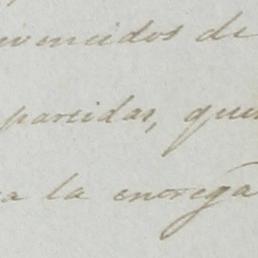 vencidos de
parcidas, que
a la enorega